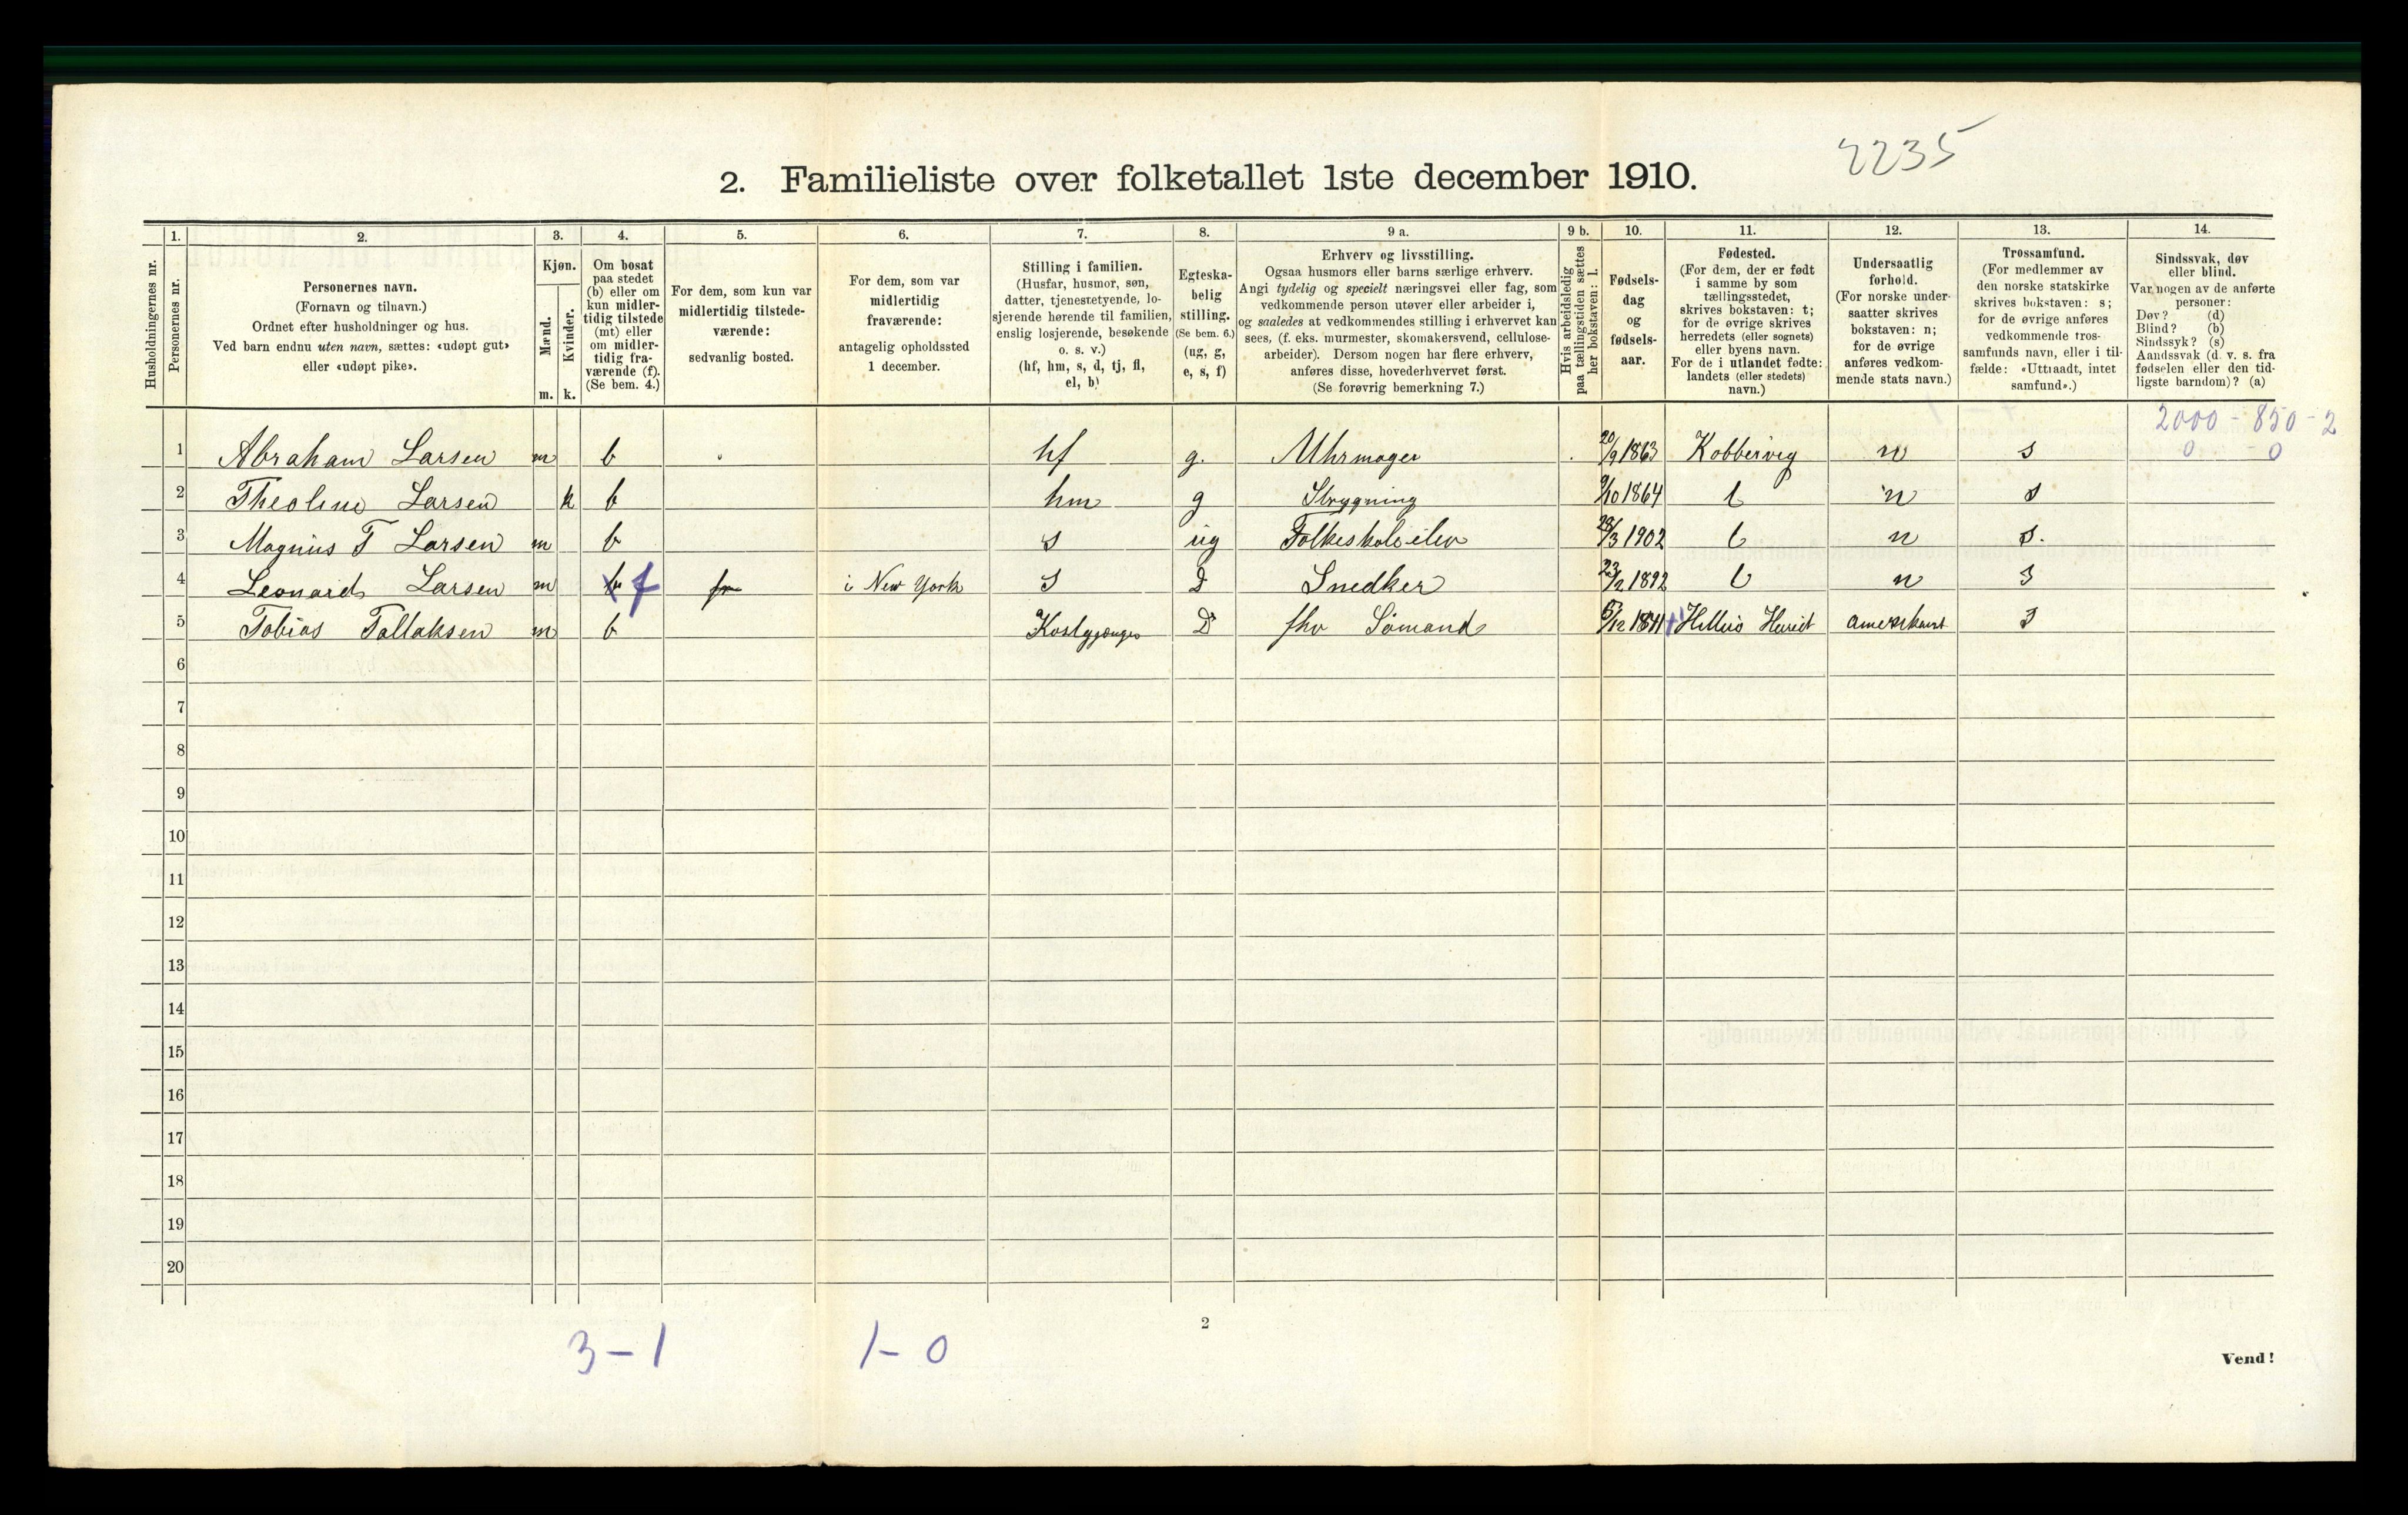 2235
2. Familieliste over folketallet 1ste december 1910.
1. 2. 3. 4. 5. 6. 7. 8. 9 a. 9 b. 10. 11. 12. 13. 14.
Husholdningernes nr.
Personernes nr.
Personernes navn.
(Fornavn og tilnavn.)
Ordnet efter husholdninger og hus.
Ved barn endnu uten navn, sættes: «udøpt gut»
eller «udøpt pike».
Kjøn.
Mænd.
Kvinder.
m. k.
Om bosat
paa stedet
(b) eller om
kun midler-
tidig tilstede
(mt) eller
om midler-
tidig fra-
værende (f).
(Se bem. 4.)
For dem, som kun var
midlertidig tilstede-
værende:
sedvanlig bosted.
For dem, som var
midlertidig
fraværende:
antagelig opholdssted
1 december.
Stilling i familien.
(Husfar, husmor, søn,
datter, tjenestetyende, lo-
sjerende hørende til familien,
enslig losjerende, besøkende
o. s. v.)
(hf, hm, s, d, tj, fl,
el, b)
Egteska-
belig
stilling.
(Se bem. 6.)
(ug, g,
e, s, f)
Erhverv og livsstilling.
Ogsaa husmors eller barns særlige erhverv.
Angi tydelig og specielt næringsvei eller fag, som
vedkommende person utøver eller arbeider i,
og saaledes at vedkommendes stilling i erhvervet kan
sees, (f. eks. murmester, skomakersvend, cellulose-
arbeider). Dersom nogen har flere erhverv,
anføres disse, hovederhvervet først.
(Se forøvrig bemerkning 7.)
Hvis arbeidsledig
paa tællingstiden sættes
her bokstaven: l.
Fødsels-
dag
og
fødsels-
aar.
Fødested.
(For dem, der er født
i samme by som
tællingsstedet,
skrives bokstaven: t;
for de øvrige skrives
herredets (eller sognets)
eller byens navn.
For de i utlandet fødte:
landets (eller stedets)
navn.)
Undersaatlig
forhold.
(For norske under-
saatter skrives
bokstaven: n;
for de øvrige
anføres vedkom-
mende stats navn.)
Trossamfund.
(For medlemmer av
den norske statskirke
skrives bokstaven: s;
for de øvrige anføres
vedkommende tros-
samfunds navn, eller i til-
fælde: «Uttraadt, intet
samfund».)
Sindssvak, døv
eller blind.
Var nogen av de anførte
personer:
Døv? (d)
Blind? (b)
Sindssyk? (s)
Aandssvak (d. v. s. fra
fødselen eller den tid-
ligste barndom)? (a)
2000 - 850 - 2
1 Abraham Larsen m b hf g. Uhrmager 20/9 1863 Kobbervig n s 0 - 0
2 Theoline Larsen k b hm g Strygning 9/10 1864 t n s
3 Magnus T Larsen m b s ug Folkeskoleelev 28/3 1902 t n s.
4 Leonard Larsen m b f i New York s Snedker 23/2 1892 t n s
5 Tobias Tallaksen m b fhv Sømand 1841 amerikansk s
6
7
8
9
10
11
12
13
14
15
16
17
18
19
20
3 - 1 1 - 0
2
Vend!